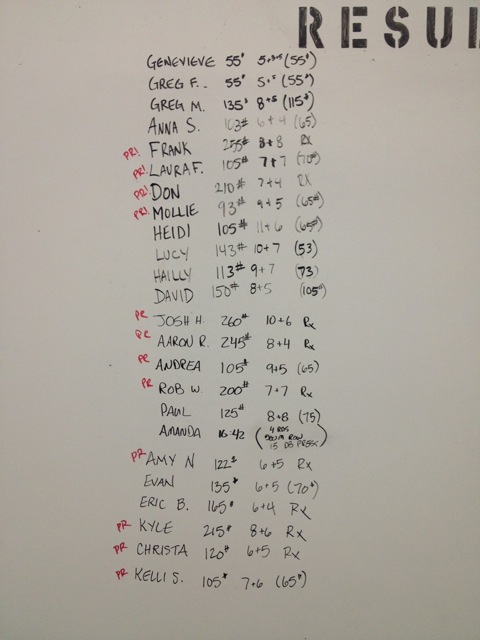 RESUL
GENEVIEVE 55# (55#)
GREG F. 55# 5+5 (55#)
GREG M. 135# 8+5 (115#)
ANNA S. 103# 6+4 (65)
PR! FRANK 255# 8+8 RX
PR! LAURA F. 105# 7+7 (70#)
PR! DON 210# 7+4 RX
PR! MOLLIE 93# 9+5 (65#)
HEIDI 105# 11+6 (65#)
LUCY 143# 10+7 (53)
HAILLY 113# 9+7 (73)
DAVID 150# 8+5 (105#)
PR JOSH H. 260# 10+6 Rx
PR AARON R. 245# 8+4 Rx
PR ANDREA 105# 9+5 (65)
PR ROB W. 200# 7+7 Rx
PAUL 125# 8+8 (75)
AMANDA 16:42 (4 RDS
500M ROW
15 DB PRESS)
PR AMY N 122# 6+5 Rx
EVAN 135# 6+5 (70#)
ERIC B. 165# 6+4 RX
PR KYLE 215# 8+6 RX
PR CHRISTA 120# 6+5 RX
PR KELLI S. 105# 7+6 (65#)